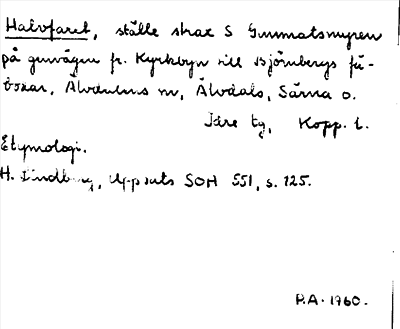 Halvfaret, ställe strax S Gummatsmyren
på genvägen fr. Kyrkbyn till Björnbergs fä-
bodar, Älvdalens sn, Älvdals, Särna o.
Idre tg, Kopp. l.
Etymologi.
H. Lindberg, Uppsats SOH 551, s. 125.
P.A. 1960.